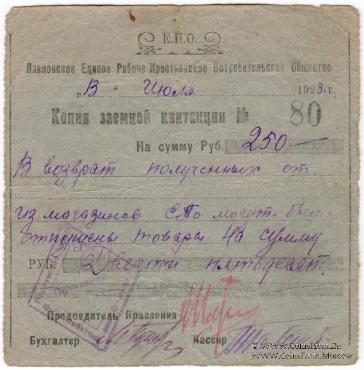 Е.П.О.
Павловское Единое Рабоче-Крестьянское Потребительское Общество
„13" Июля 1923 г.
Копия заемной квитанции № 80
На сумму Руб. 250—
В возврат полученных от
из магазинов ЕПО могут быть
отпущены товары на сумму
РУБ. Двести пятьдесят
Председатель Правления
Бухгалтер Кассир
www.CoinsFromMoscow.ru